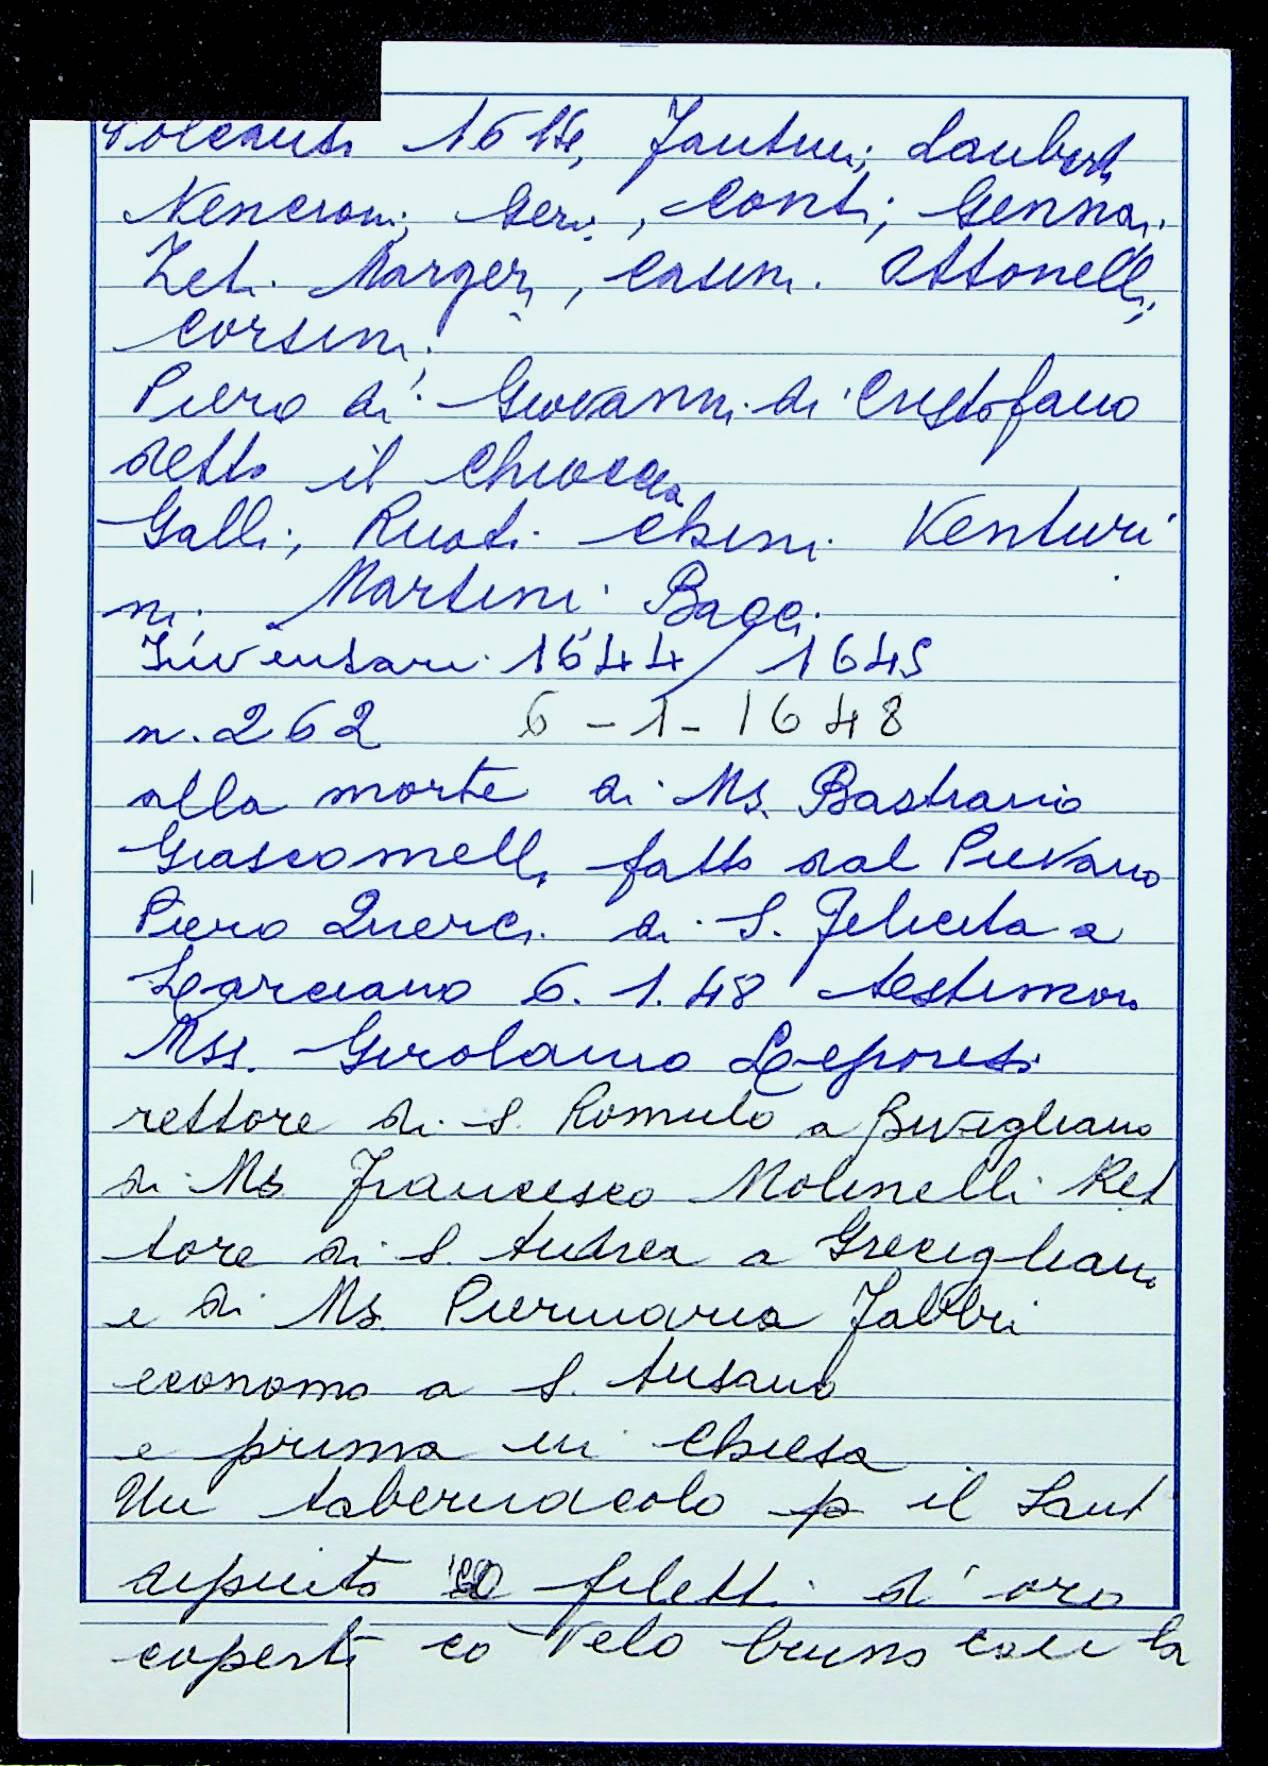 Fantini, Lamberti
Nencioni, Geri, Conti; Gennai.
Zeti. Margeri, Casini. Ottonelli,
Corsini,
Piero di Giovanni di Cristofano
detto il Chiocca
Galli, Ruoti. Chini. Venturi
ni. Martini. Bacci.
Inventari 1644/1645
n. 262 6-1-1648
alla morte di Ms. Bastiano
Giascomelli, fatto dal Pievano
Piero Querci. di S. Felicita a
Larciano 6. 1. 48 testimoni
Mss. Girolamo Leporesi
rettore di S. Romulo a Bivigliano
di Ms Francesco Molinelli Ret
tore di S. Andrea a Grecigliano
e di Ms. Piermaria Fabbri
economo a S. Ansano
e prima in Chiesa
Un tabernacolo p il Sant
dipinto filetti d'oro
coperti cò velo bruno con la